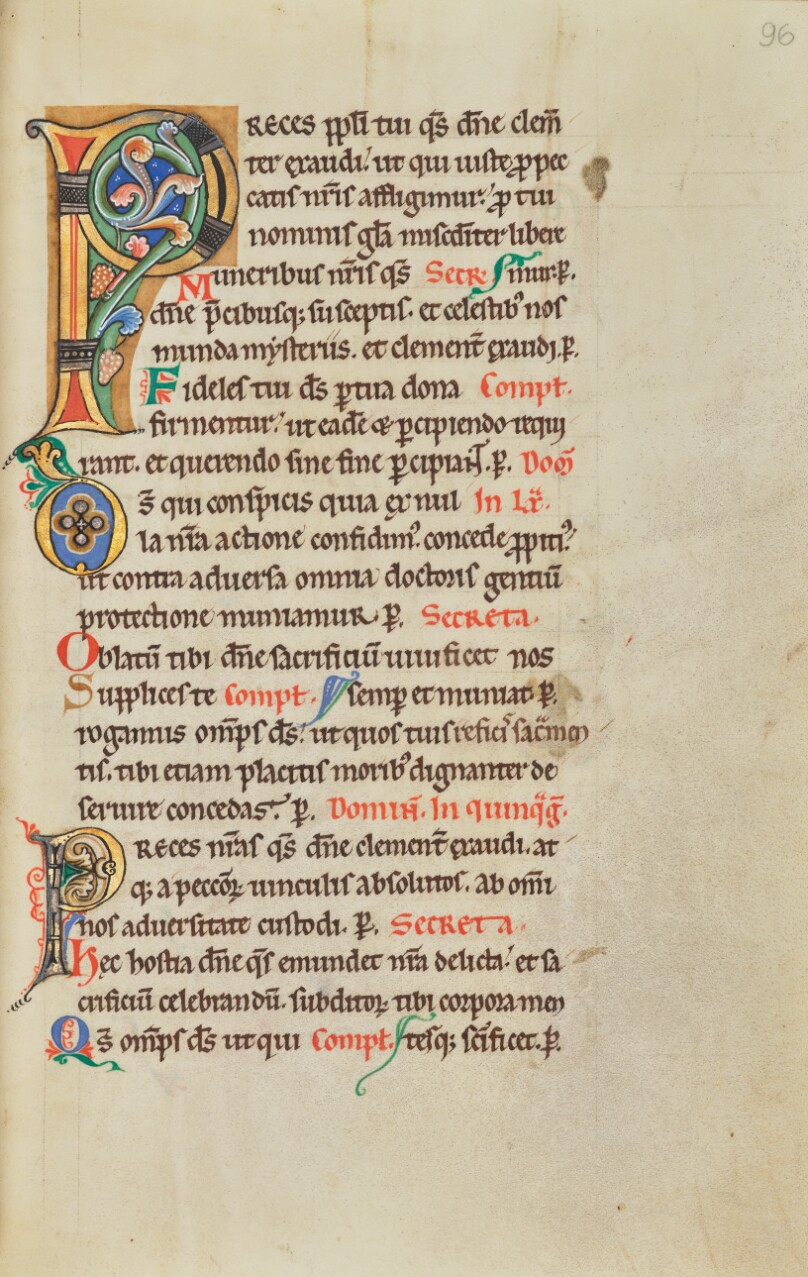 96
PRECES ppłi tui q̄s dn̄e clem̄
ter exaudi. ut qui iuste p̱ pec
catis nr̄is affligimur. p̱ tui
nominis gl̄a misēditer libere
Muneribus nr̄is q̄s Secr. mur. P.
dn̄e p̄cibusq; susceptis. et celestib᾿ nos
munda mysteriis. et clement̄ exaudi. P.
Fideles tui d̄s p̱ tua dona Compt.
firmentur. ut eadē & p̱cipiendo requi
rant. et querendo sine fine p̱cipiant. P. Dom̄
D̄s qui conspicis quia ex nul In Lx̄.
la nr̄a actione confidim᾿. concede ppiti᾿.
ut contra adversa omnia doctoris gentiū
protectione muniamur. P. Secreta.
Oblatū tibi dn̄e sacrificiū uiuificet nos
Supplices te Compt. semp̱ et muniat. P.
rogamus omp̄s d̄s. ut quos tuis reficis sac̄men
tis. tibi etiam placitis morib᾿ dignanter de
seruire concedas. P. Domin̄. In quinq̄g.
PRECES nr̄as q̄s dn̄e clement̄ exaudi. at
q; a peccōꝝ uinculis absolutos. ab om̄i
nos adversitate custodi. P. Secreta.
Hęc hostia dn̄e q̄s emundet nr̄a delicta. et sa
crificiū celebrandū. subditoꝝ tibi corpora men
Q̄s omp̄s d̄s ut qui Compt. tesq; sc̄ificet. P.